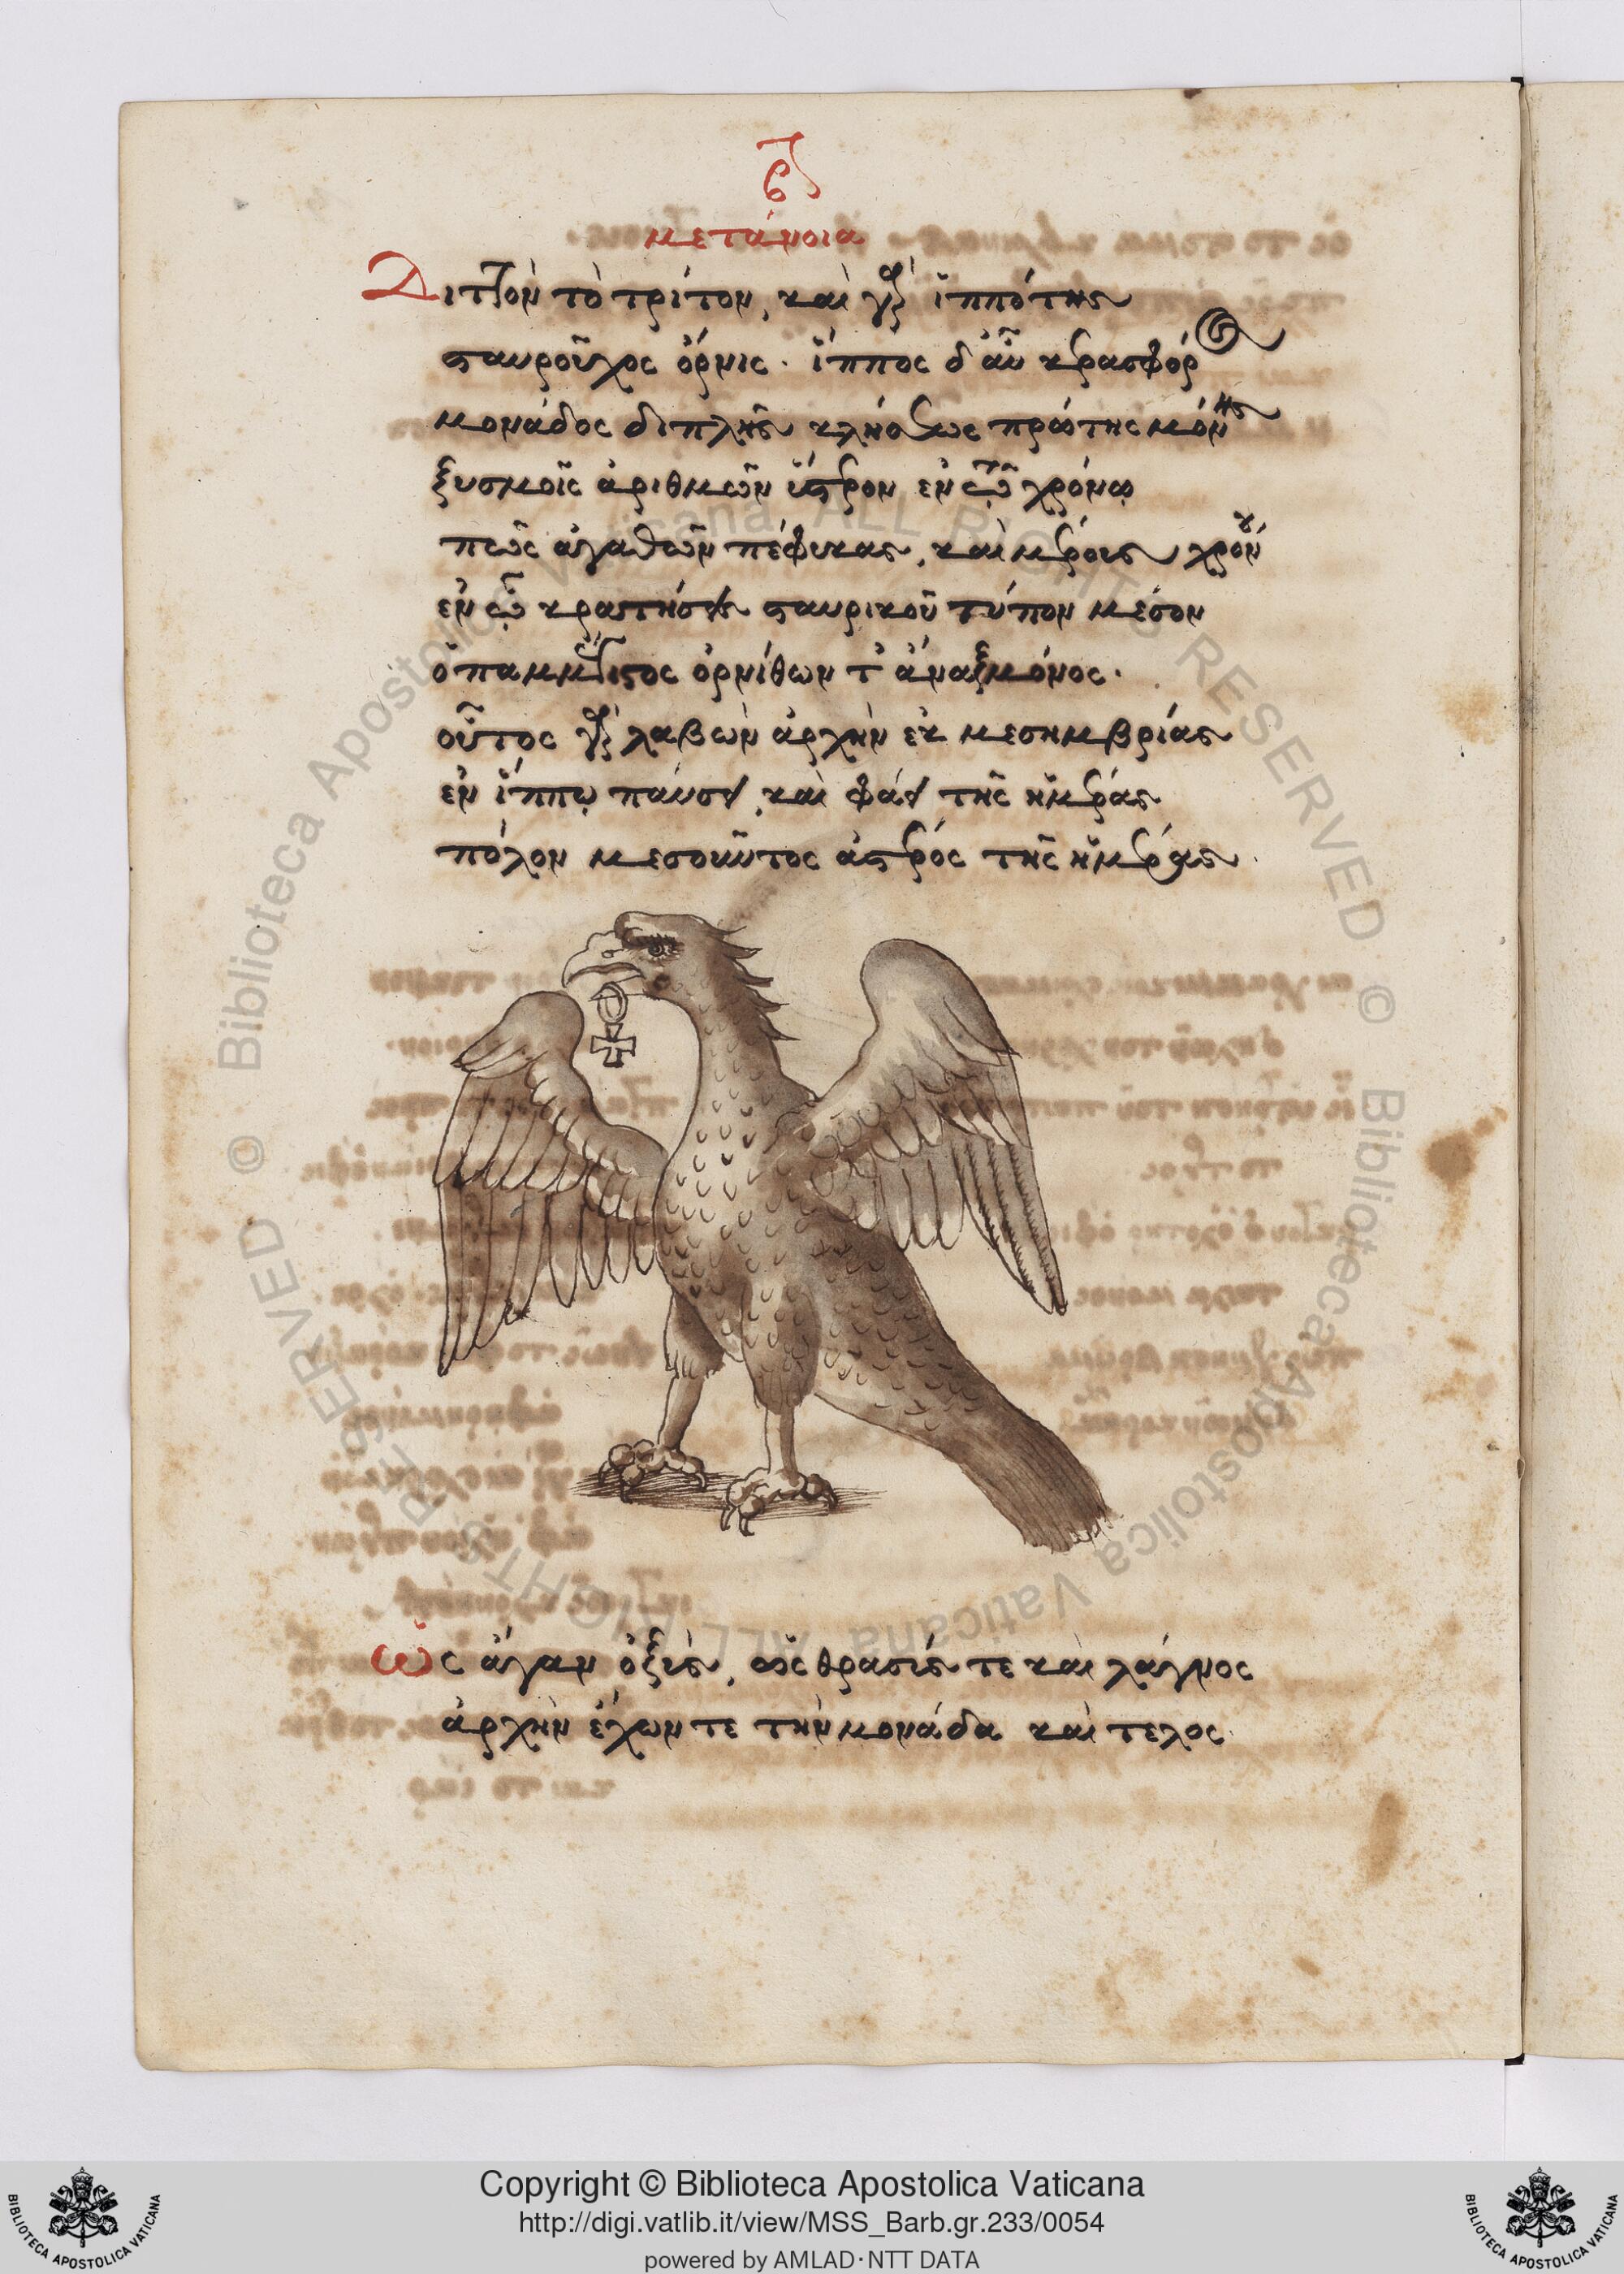 μετάνοια
Διττὸν τὸ τρίτον, καὶ ἱππότης
σταυροῦχος ὄρνις · ἵππος δ' αὖ κερασφόρ
μονάδος διπλῆς κλήσεως πρώτης μόνης
ξυσμοῖς ἀριθμῶν ὕστερον ἐν ᾧ χρόνῳ
πῶς ἀγαθῶν πέφυκας, καὶ μέρους χρόν
ἐν ᾧ κρατήσεις σταυρικοῦ τύπον μέσον
ὁ παμμέγιστος ὀρνίθων τ' ἄναξ μόνος ·
οὗτος λαβὼν ἀρχὴν ἐκ μεσημβρίας
ἐν ἵππῳ παύσει, καὶ φάει τῆς ἡμέρας
πόλον μεσοῦντος ἀστέρος τῆς ἡμέρας ·
ὡς ἄγαν ὀξὺς, ὡς θρασύς τε καὶ λάγνος
ἀρχὴν ἔχων τε τὴν μονάδα καὶ τελος ·
Copyright © Biblioteca Apostolica Vaticana
http://digi.vatlib.it/view/MSS_Barb.gr.233/0054
powered by AMLAD·NTT DATA